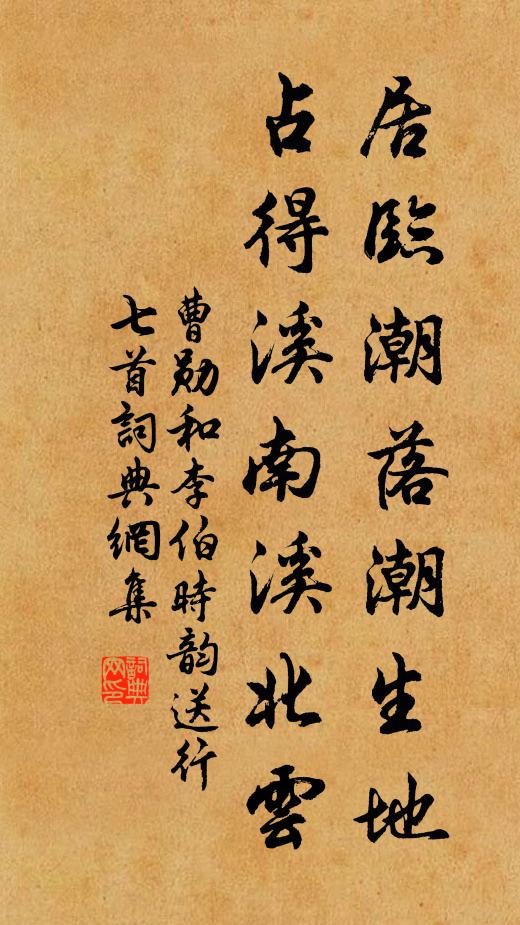 居臨潮落潮生地
占得溪南溪北雲
曹勛和李伯時韵送行
七首詞典網集
詞典网印